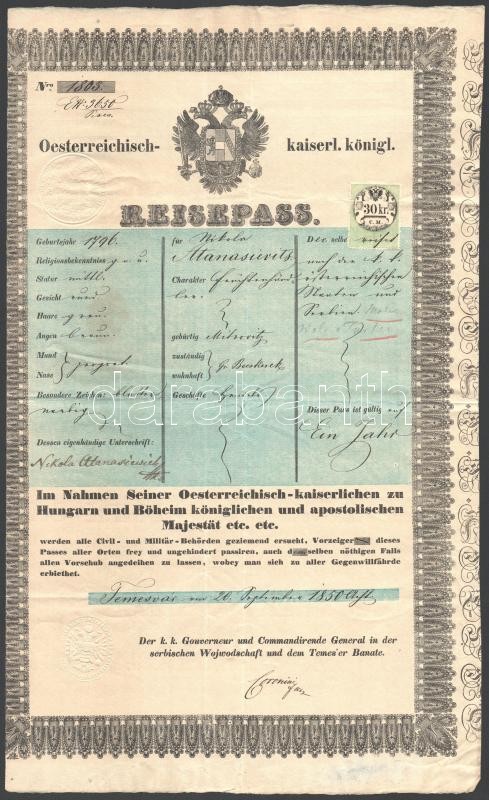 Nro. 1803.
Oesterreichisch- kaiserl. königl.
REISEPASS.
30 kr.
C. M.
Geburtsjahr 1796.
Religionsbekenntniss g. n. u.
Statur mittl.
Gesicht rund
Haare grau
Augen braun
Mund
Nase
Besondere Zeichen: Blatter
narbig
Dessen eigenhändige Unterschrift:
Nikola Atanasievich
für Nikola
Atanasievits
Charakter Früchtenhänd
ler.
gebürtig Mitrovitz
zuständig
wohnhaft
Gr. Becskerek
Geschäfte
Derselbe reiset
nach den k. k.
österreichischen
Staaten und
Serbien
Dieser Pass ist gültig auf
Ein Jahr
darabanth
Im Nahmen Seiner Oesterreichisch-kaiserlichen zu
Hungarn und Böheim königlichen und apostolischen
Majestät etc. etc.
werden alle Civil- und Militär-Behörden geziemend ersucht, Vorzeiger dieses
Passes aller Orten frey und ungehindert passiren, auch demselben nöthigen Falls
allen Vorschub angedeihen zu lassen, wobey man sich zu aller Gegenwillfährde
erbiethet.
Temesvar am 26. September 1850
Der k. k. Gouverneur und Commandirende General in der
serbischen Wojwodschaft und dem Temes'er Banate.
Coronini